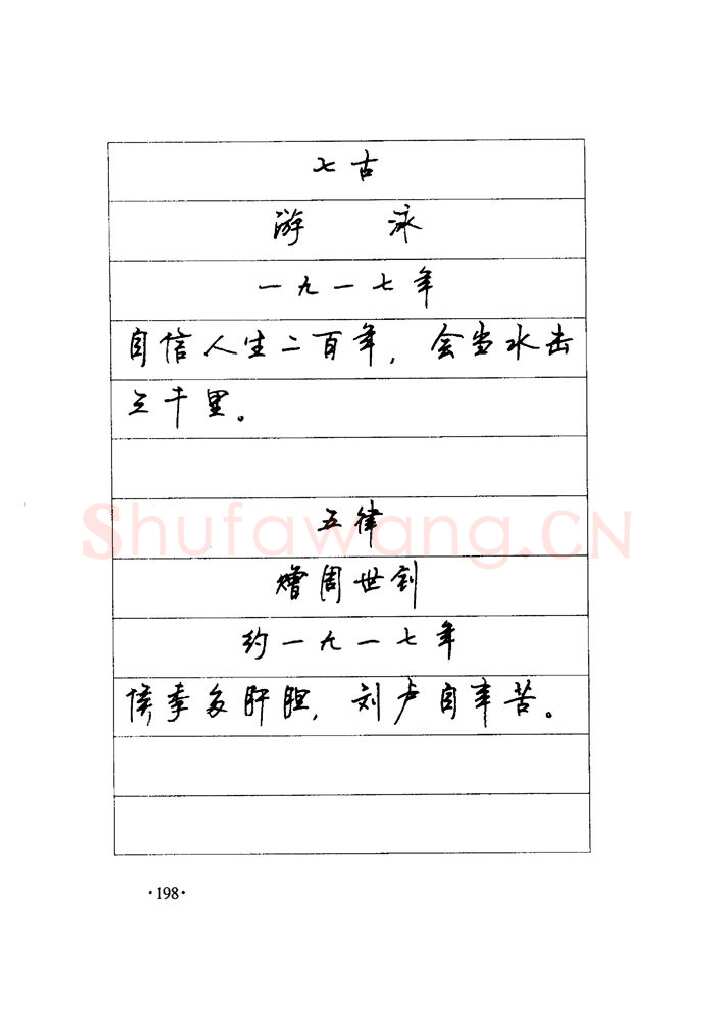 七古
游 泳
一九一七年
自信人生二百年，会当水击
三千里。
Shufawang.CN
五律
赠周世钊
约一九一七年
侯季多肝胆，刘卢自辛苦。
·198·